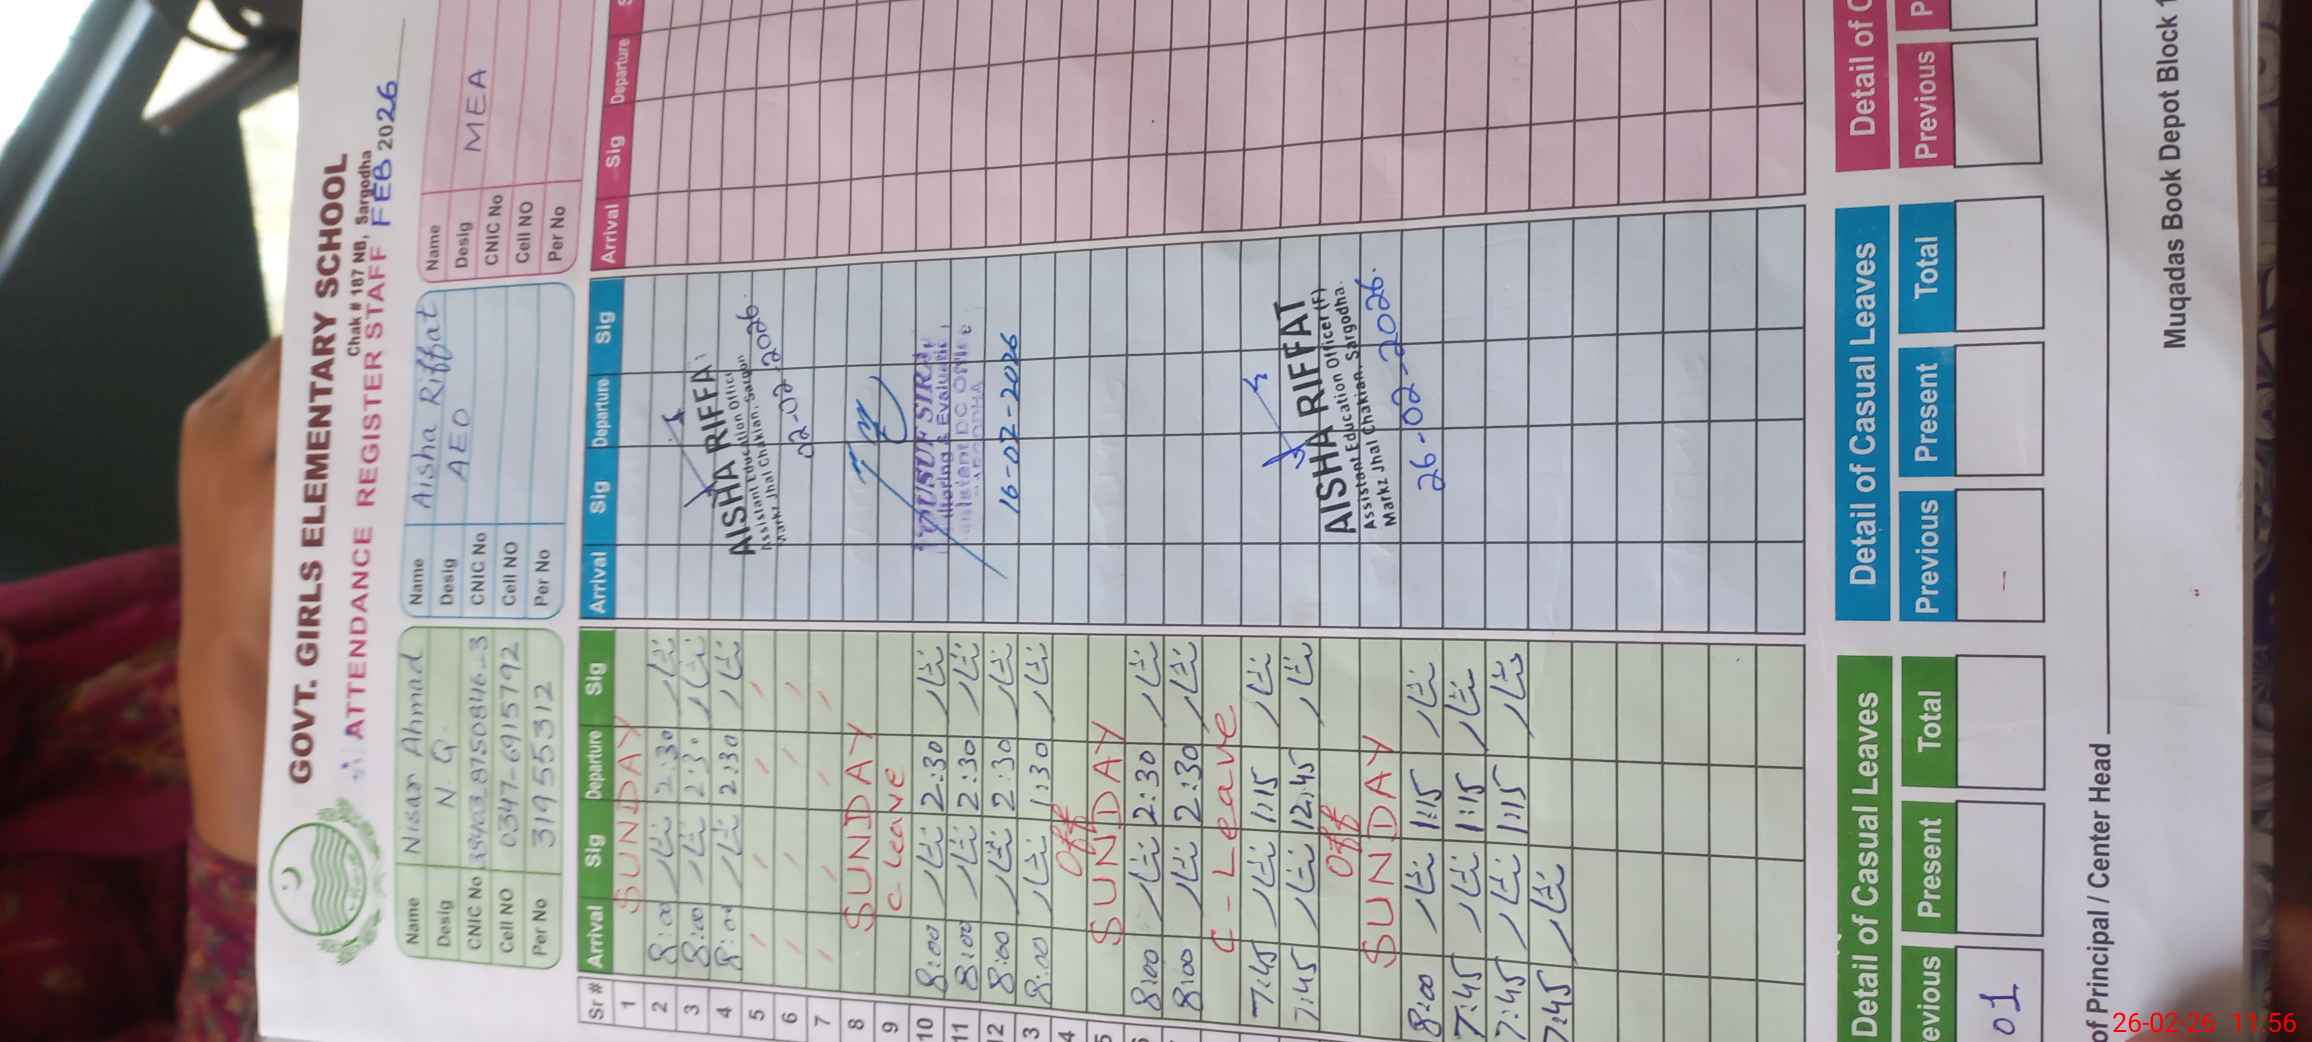 GOVT. GIRLS ELEMENTARY SCHOOL
Chak # 187 NB, Sargodha
ATTENDANCE REGISTER STAFF FEB 2026
Name Nisar Ahmad
Desig N Q
CNIC No
Cell NO 0347-6915792
Per No 31955312
Name Aisha Riffat
Desig AEO
CNIC No
Cell NO
Per No
Name
Desig MEA
CNIC No
Cell NO
Per No
Sr # Arrival Sig Departure Sig Arrival Sig Departure Sig Arrival Sig Departure
1 SUNDAY
2 8:00 2:30
3 8:00 2:30
4 8:00 2:30
5
6
7
8 SUNDAY
9 C Leave
10 8:00 2:30
11 8:00 2:30
12 8:00 2:30
3 8:00 1:30
4 Off
5 SUNDAY
8:00 2:30
8:00 2:30
C-Leave
7:45 1:15
7:45 12:45
Off
SUNDAY
8:00 1:15
7:45 1:15
7:45 1:15
7:45
AISHA RIFFA
Assistant Education Offic
Markz Jhal Chakian, Sargo
02-02-2026.
YOUSUF SIRAJ
16-02-2026
AISHA RIFFAT
Assistant Education Officer (F)
Markz Jhal Chakian, Sargodha.
26-02-2026.
Detail of Casual Leaves
evious Present Total
01
Detail of Casual Leaves
Previous Present Total
-
Detail of C
Previous P
of Principal / Center Head
Muqadas Book Depot Block 1
26-02-26 11:56